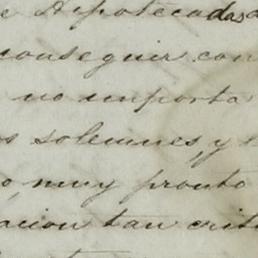 e Hipotecadas
conseguir con
no importa
s solemnes y
o muy pronto
acion tan criti